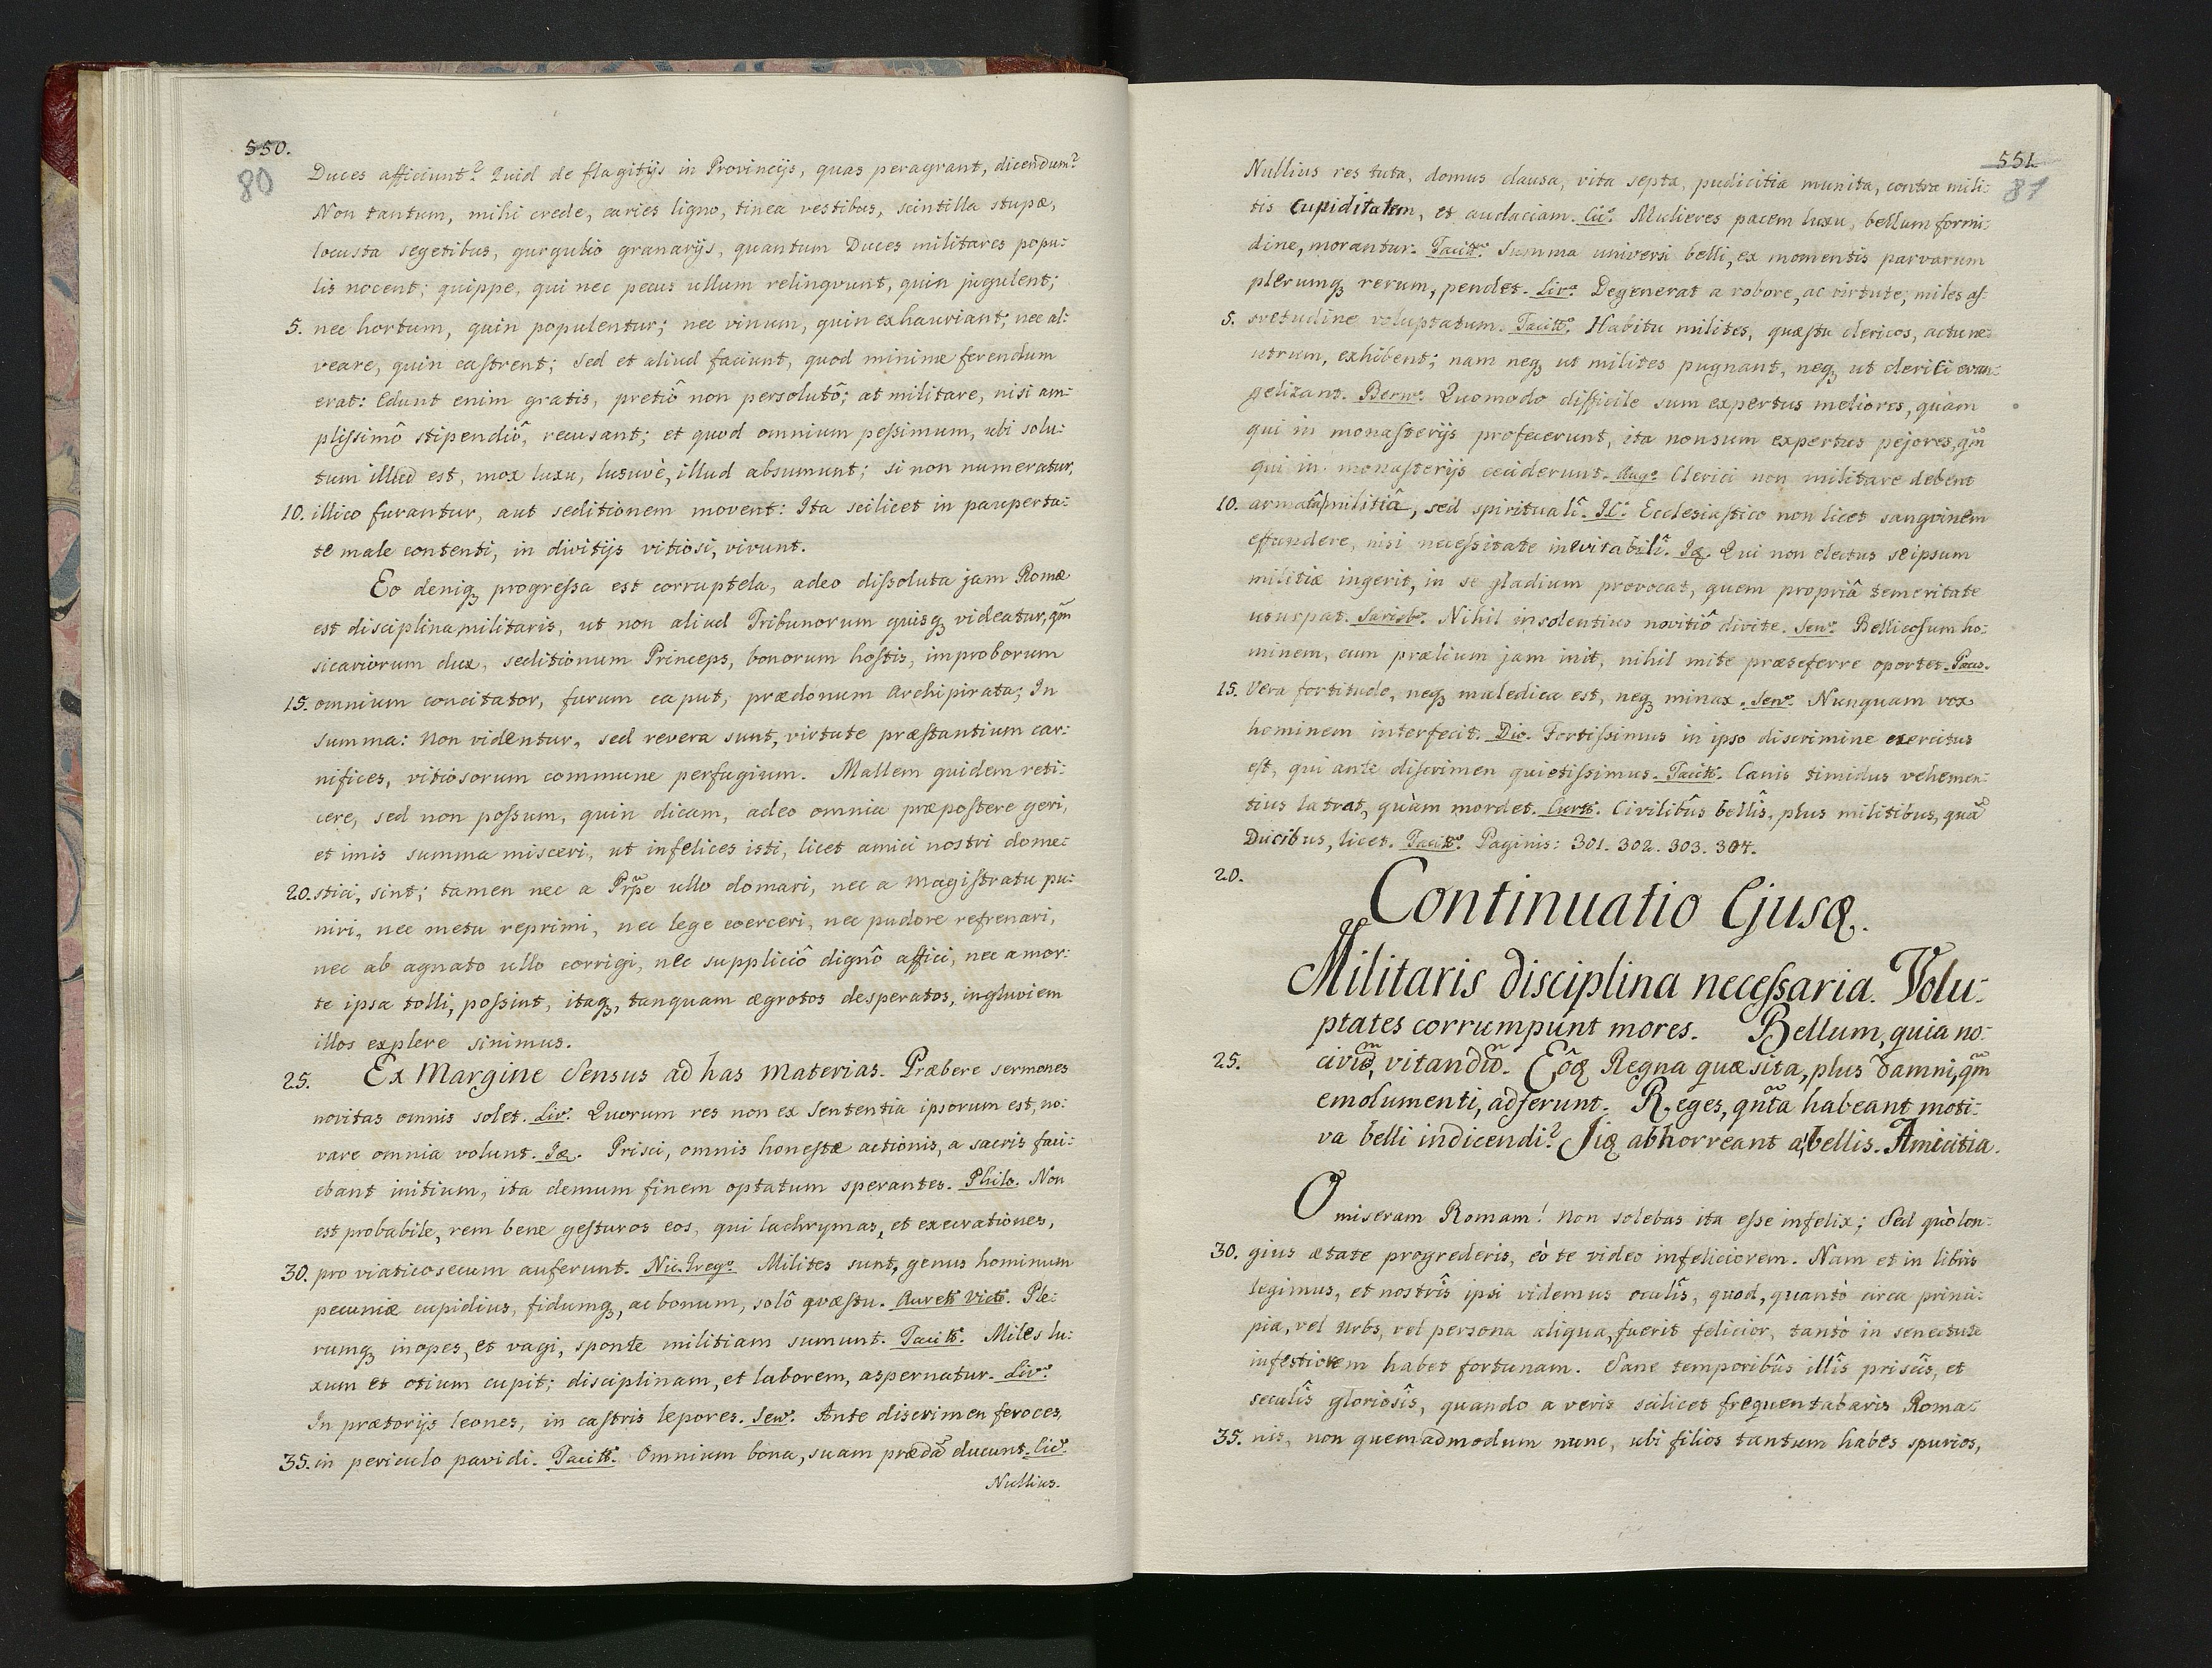 550.
80
Duces afficiunt? Quid de flagitijs in Provincijs, quas peragrant, dicendum?
Non tantum, mihi crede, caries ligno, tinea vestibus, scintilla stupæ,
locusta segetibus, gurgulio granarijs, quantum Duces militares popu:
lis nocent; quippe, qui nec pecus ullum relinqvunt, quin jugulent;
5. nec hortum, quin populentur; nec vinum, quin exhauriant; nec al:
veare, quin castrent; sed et aliud faciunt, quod minimæ ferendum
erat: Edunt enim gratis, pretiô non persolutô; at militare, nisi am:
plissimô stipendiô, recusant; et quod omnium pessimum, ubi solu:
tum illud est, mox luxu, lusuvè, illud absumunt; si non numeratur,
10. illico furantur, aut seditionem movent: Ita scilicet in pauperta:
te male contenti, in divitijs vitiosi, vivunt.
Eo deniq₃ progressa est corruptela, adeo dissoluta jam Romæ
est disciplina militaris, ut non aliud Tribunorum quisq₃ videatur, qm̃
sicariorum dux, seditionum Princeps, bonorum hostis, improborum
15. omnium concitator, furum caput, prædonum Archipirata; In
summa: Non videntur, sed revera sunt, virtute præstantium car:
nifices, vitiosorum commune perfugium. Mallem quidem reti:
cere, sed non possum, quin dicam, adeo omnia præpostere geri,
et imis summa misceri, ut infelices isti, licet amici nostri dome:
20. stici, sint; tamen nec a Prpẽ ullo domari, nec a Magistratu pu:
niri, nec metu reprimi, nec lege coerceri, nec pudore refrenari,
nec ab agnato ullo corrigi, nec suppliciô dignô affici, nec a mor:
te ipsa tolli, possint, itaq₃, tanquam ægrotos desperatos, ingluviem
illos explere sinimus.
25. Ex Margine Sensus ad has Materias. Præbere sermones
novitas omnis solet. Liv9. Quorum res non ex Sententia ipsorum est, no:
vare omnia volunt. Iæ. Prisci, omnis honestæ actionis, a sacris faci:
ebant initium, ita demum finem optatum sperantes. Philo. Non
est probabile, rem bene gesturos eos, qui lachrymas, et execrationes,
30. pro viatico secum auferunt. Nic. Greg9. Milites sunt, genus hominum
pecuniæ cupidius, fidumq₃, ac bonum, solô qvæstu. Aurelt Vict9. Ple:
rumq₃ inopes, et vagi, sponte militiam sumunt. Tacitt9. Miles lu:
xum et otium cupit; disciplinam, et laborem, aspernatur. Liv9.
In prætorijs leones, in castris lepores. Sen9. Ante discrimen feroces,
35. in periculo pavidi. Tacitt9. Omnium bona, suam prædã ducunt. Cic9.
Nullius.
551.
81
Nullius res tuta, domus clausa, vita septa, pudicitia munita, contra mili:
tis cupiditatem, et audaciam. Cic9. Mulieres pacem luxu, bellum formi:
dine, morantur. Tacitt9. Summa universi belli, ex momentis parvarum
plerumq₃ rerum, pendet. Liv9. Degenerat a robore, ac virtute, miles as:
5. svetudine voluptatum. Tacitt9. Habitu milites, quæstu clericos, actu ne:
utrum, exhibent; nam neq₃ ut milites pugnant, neq₃ ut clerici evan:
gelizant. Bern9. Quomodo difficile sum expertus meliores, quàm
qui in monasterijs profecerunt, ita non sum expertus pejores, qm̃
qui in monasterijs ceciderunt. Aug9. Clerici non militare debent
10. armatâ militiâ, sed spirituali. IC9. Ecclesiastico non licet sangvinem
effundere, nisi necessitate inevitabilî. Iæ. Qui non electus seipsum
militiæ ingerit, in se gladium provocat, quem propriâ temeritate
usurpat. Sarisb9. Nihil insolentius novitiô divite. Sen9. Bellicosum ho:
minem, cum prælium jam init, nihil mite præseferre oportet. Paus.
15. Vera fortitudo, neq₃ maledica est, neq₃ minax. Sen9. Nunquam vox
hominem interfecit. Dio. Fortissimus in ipso discrimine exercitus
est, qui ante discrimen quietissimus. Tacitt. Canis timidus vehemen:
tius latrat, quàm mordet. Curtt. Civilibûs bellîs, plus militibus, quã
Ducibus, licet. Tacitt9. Paginis: 301. 302. 303. 304.
20.
Continuatio Ejusq₃.
Militaris disciplina necessaria. Volu:
ptates corrumpunt mores. Bellum, quia no:
25. civũ, vitandũ. Eôq₃ Regna quæsita, plus damni, qm̃
emolumenti, adferunt. Reges, qñta habeant moti:
va belli indicendi? Jiq₃ abhorreant a bellis. Amicitia.
O miseram Romam! Non solebas ita esse infelix; Sed quò lon:
30. gius ætate progrederis, eò te video infeliciorem. Nam et in libris
legimus, et nostrîs ipsi videmus oculîs, quod, quantò circa princi:
pia, vel Urbs, vel persona aliqua, fuerit felicior, tantò in senectute
infestiorem habet fortunam. Sane temporibûs illîs priscîs, et
seculîs gloriosîs, quando a veris scilicet frequentabaris Roma:
35. nis, non quemadmodum nunc, ubi filios tantum habes spurios,